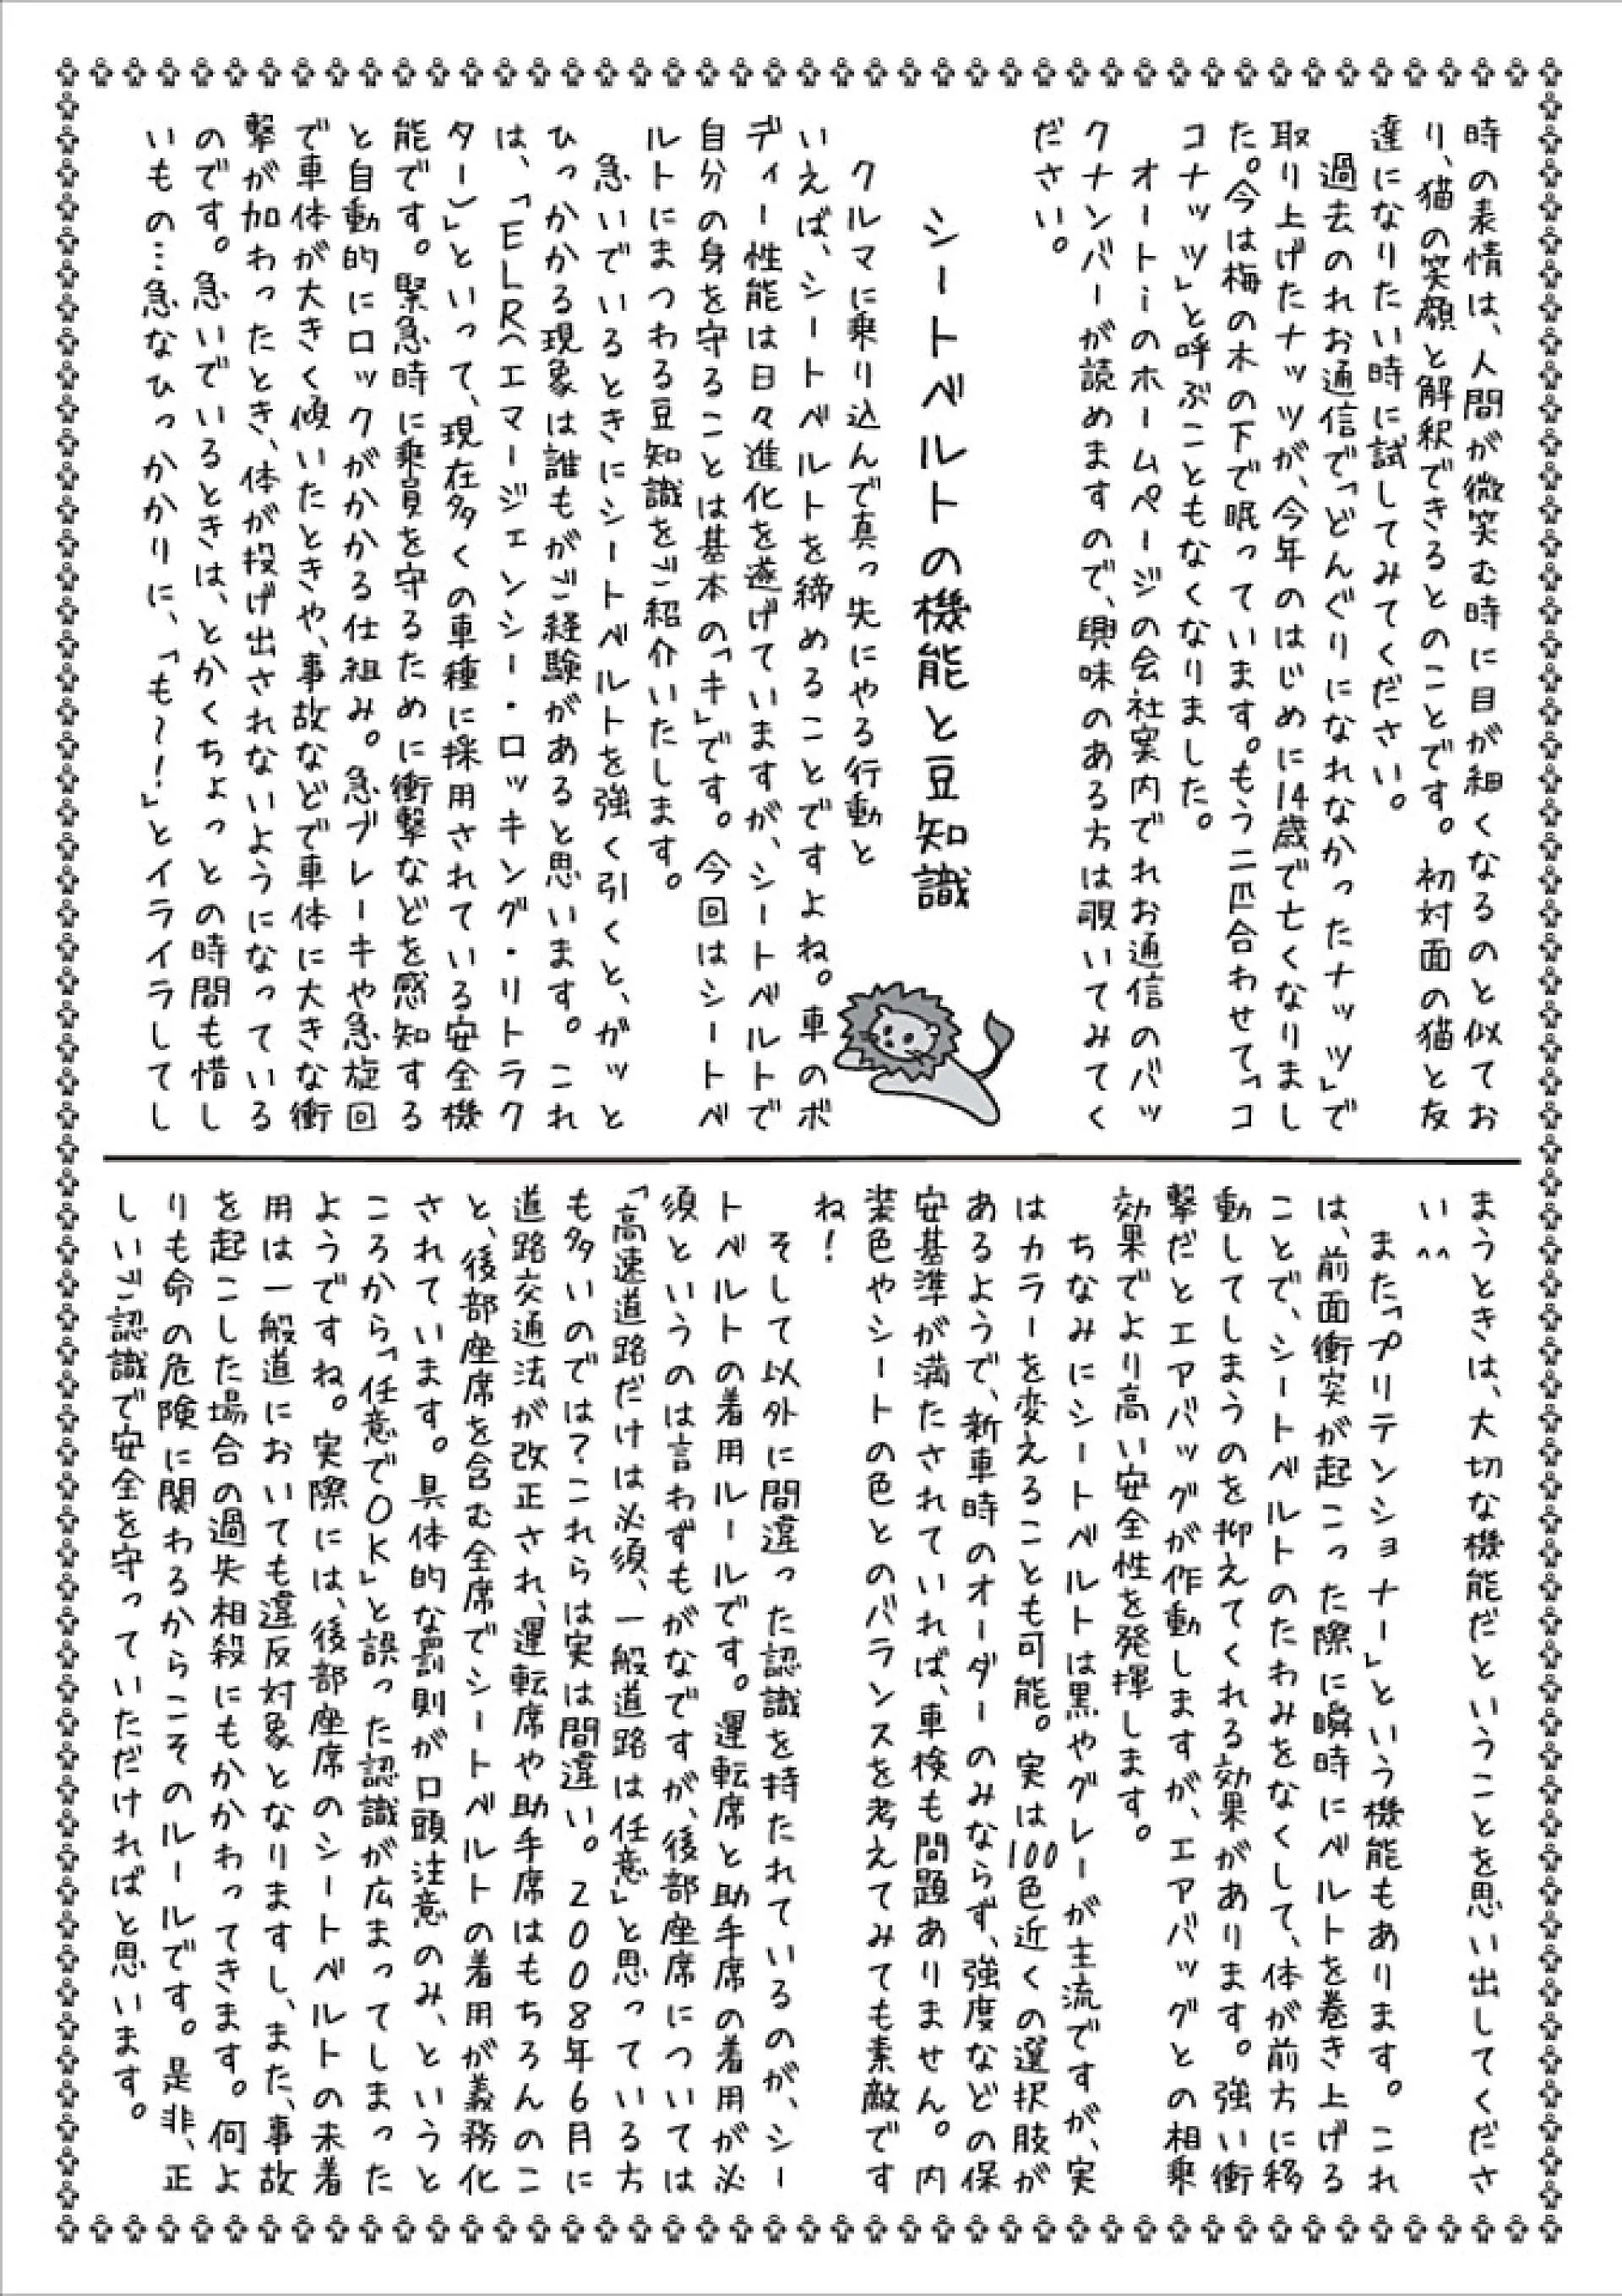 時の表情は、人間が微笑む時に目が細くなるのと似てお
り、猫の笑顔と解釈できるとのことです。初対面の猫と友
達になりたい時に試してみてください。
過去のれお通信で「どんぐりになれなかったナッツ」で
取り上げたナッツが、今年のはじめに14歳で亡くなりまし
た。今は梅の木の下で眠っています。もう二匹合わせて「コ
コナッツ」と呼ぶこともなくなりました。
オートiのホームページの会社案内でれお通信のバッ
クナンバーが読めますので、興味のある方は覗いてみてく
ださい。
シートベルトの機能と豆知識
クルマに乗り込んで真っ先にやる行動と
いえば、シートベルトを締めることですよね。車のボ
ディー性能は日々進化を遂げていますが、シートベルトで
自分の身を守ることは基本の「キ」です。今回はシートベ
ルトにまつわる豆知識をご紹介いたします。
急いでいるときにシートベルトを強く引くと、ガッと
ひっかかる現象は誰もがご経験があると思います。これ
は、「ELR(エマージェンシー・ロッキング・リトラク
ター)」といって、現在多くの車種に採用されている安全機
能です。緊急時に乗員を守るために衝撃などを感知する
と自動的にロックがかかる仕組み。急ブレーキや急旋回
で車体が大きく傾いたときや、事故などで車体に大きな衝
撃が加わったとき、体が投げ出されないようになっている
のです。急いでいるときは、とかくちょっとの時間も惜し
いもの…急なひっかかりに、「も~!」とイライラしてし
まうときは、大切な機能だということを思い出してくださ
い^^
また「プリテンショナー」という機能もあります。これ
は、前面衝突が起こった際に瞬時にベルトを巻き上げる
ことで、シートベルトのたわみをなくして、体が前方に移
動してしまうのを抑えてくれる効果があります。強い衝
撃だとエアバッグが作動しますが、エアバッグとの相乗
効果でより高い安全性を発揮します。
ちなみにシートベルトは黒やグレーが主流ですが、実
はカラーを変えることも可能。実は100色近くの選択肢が
あるようで、新車時のオーダーのみならず、強度などの保
安基準が満たされていれば、車検も問題ありません。内
装色やシートの色とのバランスを考えてみても素敵です
ね!
そして以外に間違った認識を持たれているのが、シー
トベルトの着用ルールです。運転席と助手席の着用が必
須というのは言わずもがなですが、後部座席については
「高速道路だけは必須、一般道路は任意」と思っている方
も多いのでは?これらは実は間違い。2008年6月に
道路交通法が改正され、運転席や助手席はもちろんのこ
と、後部座席を含む全席でシートベルトの着用が義務化
されています。具体的な罰則が口頭注意のみ、というと
ころから「任意でOK」と誤った認識が広まってしまった
ようですね。実際には、後部座席のシートベルトの未着
用は一般道においても違反対象となりますし、また、事故
を起こした場合の過失相殺にもかかわってきます。何よ
りも命の危険に関わるからこそのルールです。是非、正
しいご認識で安全を守っていただければと思います。